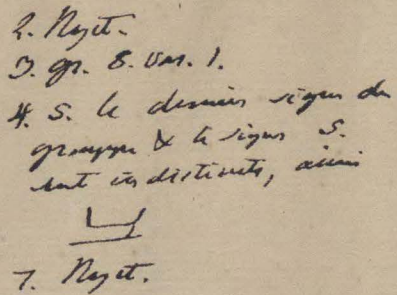 2. Noyet.
3. gr. 8. Var. 1.
4. S. le dernier signe du
groupe & le signe S.
sont indistincts, ainsi
7. Noyet.